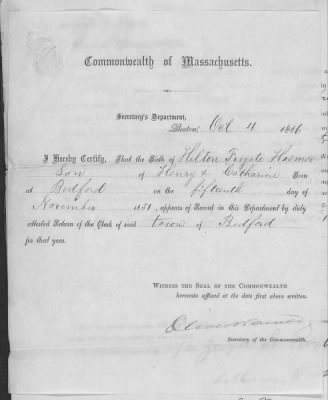 Commonwealth of Massachusetts.
Secretary's Department,
Boston, Oct 4 1866
I Hereby Certify, That the Birth of Hilton Fayate Hosmer
Son of Henry & Catharine Born
at Bedford on the fifteenth day of
November 1851, appears of Record in this Department by duly
attested Return of the Clerk of said town of Bedford
for that year.
WITNESS THE SEAL OF THE COMMONWEALTH
hereunto affixed at the date first above written.
Oliver Warner,
Secretary of the Commonwealth.